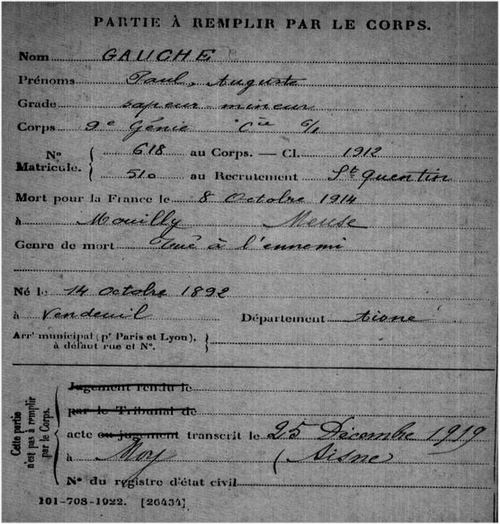 PARTIE À REMPLIR PAR LE CORPS.
Nom GAUCHE
Prénoms Paul, Auguste
Grade sapeur mineur
Corps 9e Génie Cie 6/1
No Matricule. 618 au Corps. — Cl. 1912
510 au Recrutement St Quentin
Mort pour la France le 8 Octobre 1914
à Mouilly Meuse
Genre de mort Tué à l'ennemi
Né le 14 Octobre 1892
à Vendeuil Département Aisne
Arrt municipal (pr Paris et Lyon), à défaut rue et No.
Cette partie n'est pas à remplir par le Corps.
Jugement rendu le
par le Tribunal de
acte ou jugement transcrit le 25 Décembre 1919
à Moy (Aisne
No du registre d'état civil
101-708-1922. [26434]